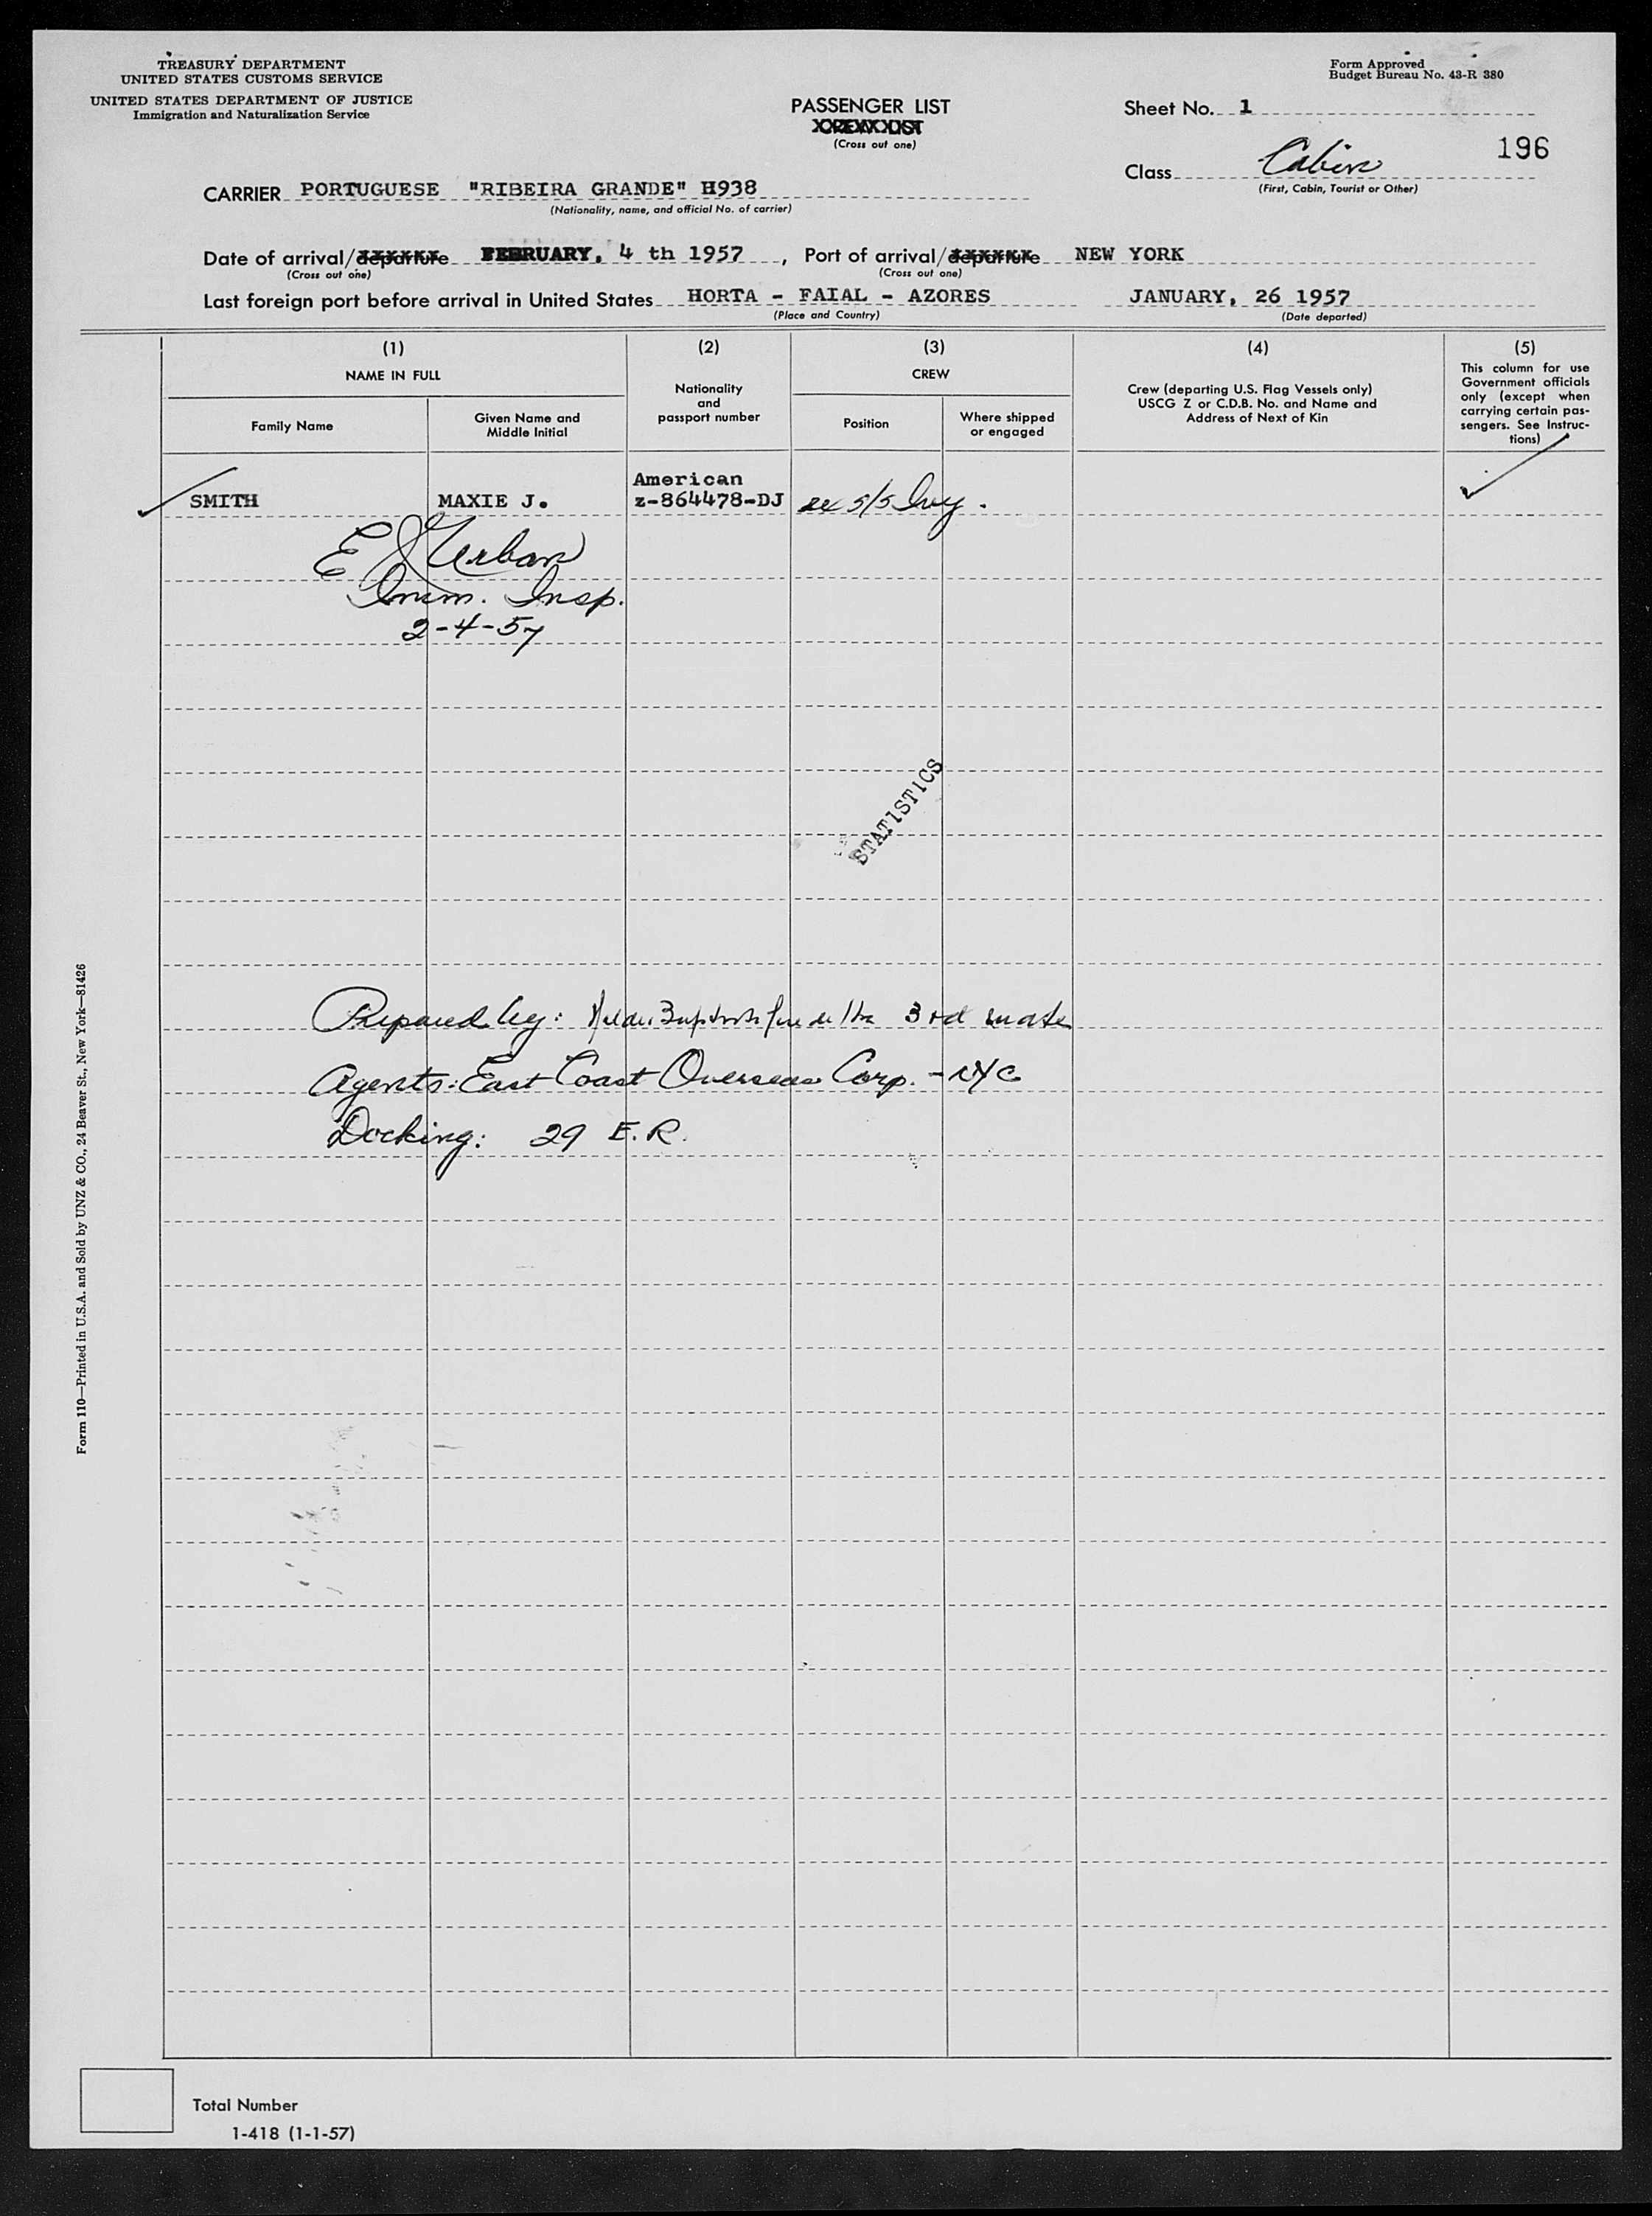 TREASURY DEPARTMENT
UNITED STATES CUSTOMS SERVICE
UNITED STATES DEPARTMENT OF JUSTICE
Immigration and Naturalization Service
Form Approved
Budget Bureau No. 43-R 380
PASSENGER LIST
(Cross out one)
Sheet No. 1
196
Class Cabin
(First, Cabin, Tourist or Other)
CARRIER PORTUGUESE "RIBEIRA GRANDE" H938
(Nationality, name, and official No. of carrier)
Date of arrival/departure FEBRUARY, 4 th 1957, Port of arrival/departure NEW YORK
(Cross out one) (Cross out one)
Last foreign port before arrival in United States HORTA - FAIAL - AZORES JANUARY, 26 1957
(Place and Country) (Date departed)
(1) (2) (3) (4) (5)
NAME IN FULL
Family Name
Given Name and
Middle Initial
Nationality
and
passport number
CREW
Position
Where shipped
or engaged
Crew (departing U.S. Flag Vessels only)
USCG Z or C.D.B. No. and Name and
Address of Next of Kin
This column for use
Government officials
only (except when
carrying certain pas-
sengers. See Instruc-
tions)
American
SMITH MAXIE J. z-864478-DJ ex S/S
E J Urban
Imm. Insp.
2-4-57
STATISTICS
Prepared by: 3rd mate
Agents: East Coast Overseas Corp. - NYC
Docking: 29 E.R.
Form 110—Printed in U.S.A. and Sold by UNZ & CO., 24 Beaver St., New York—81426
Total Number
1-418 (1-1-57)